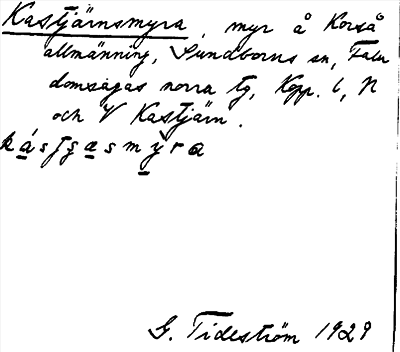 Kastjärnsmyra, myr å Korså
allmänning, Sundborns sn, Falu
domsagas norra tg, Kopp. l, N
och V Kastjärn.
G. Tideström 1929